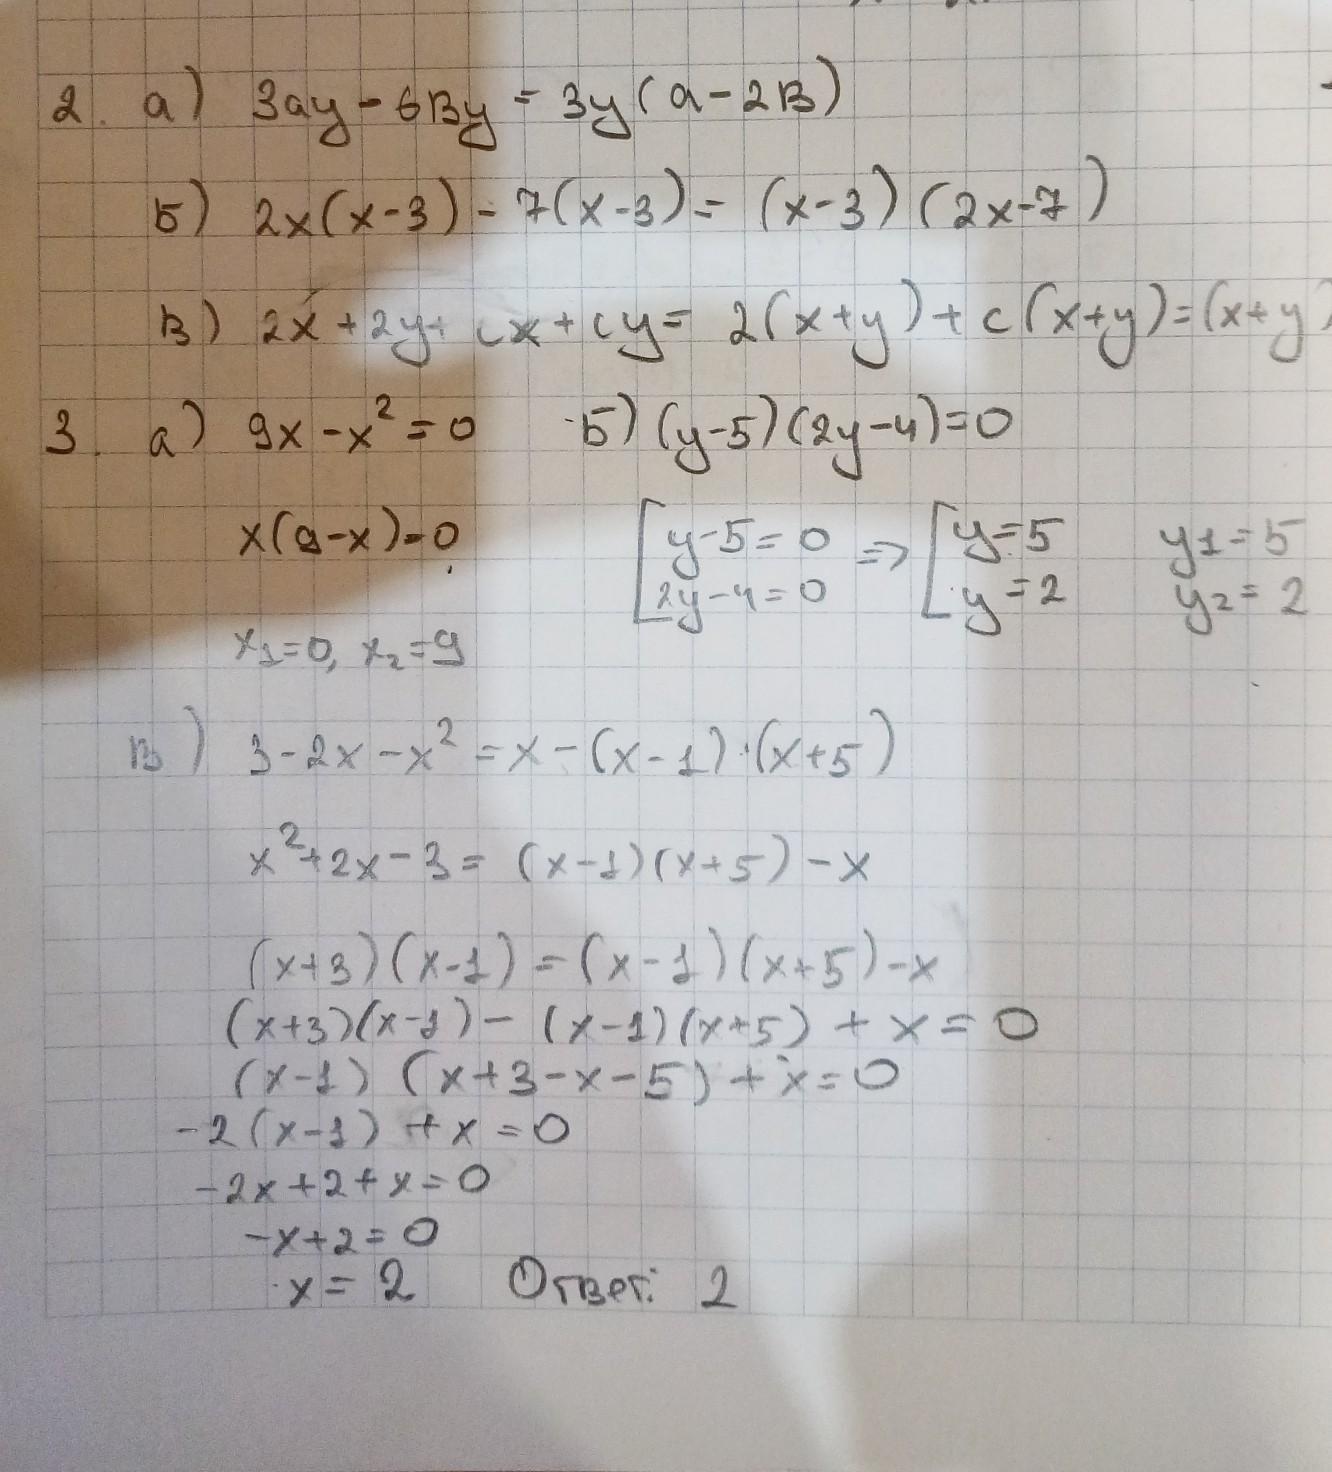 2. а) 3ay - 6By = 3y(a - 2B)
Б) 2x(x-3) - 7(x-3) = (x-3)(2x-7)
В) 2x + 2y + cx + cy = 2(x+y) + c(x+y) = (x+y)
3. а) 9x - x² = 0 Б) (y-5)(2y-4)=0
x(9-x)=0 [y-5=0 => [y=5 y1=5
2y-4=0 y=2 y2=2
x1=0, x2=9
В) 3-2x-x² = x-(x-1)·(x+5)
x²+2x-3 = (x-1)(x+5)-x
(x+3)(x-1) = (x-1)(x+5)-x
(x+3)(x-1) - (x-1)(x+5) + x = 0
(x-1) (x+3-x-5) + x = 0
-2(x-1) + x = 0
-2x+2+x=0
-x+2=0
x=2 Ответ: 2